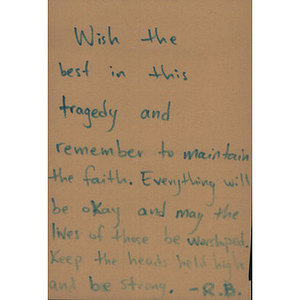 Wish the
best in this
tragedy and
remember to maintain
the faith. Everything will
be okay and may the
lives of those be worshiped.
Keep the heads held high
and be strong. -R.B.